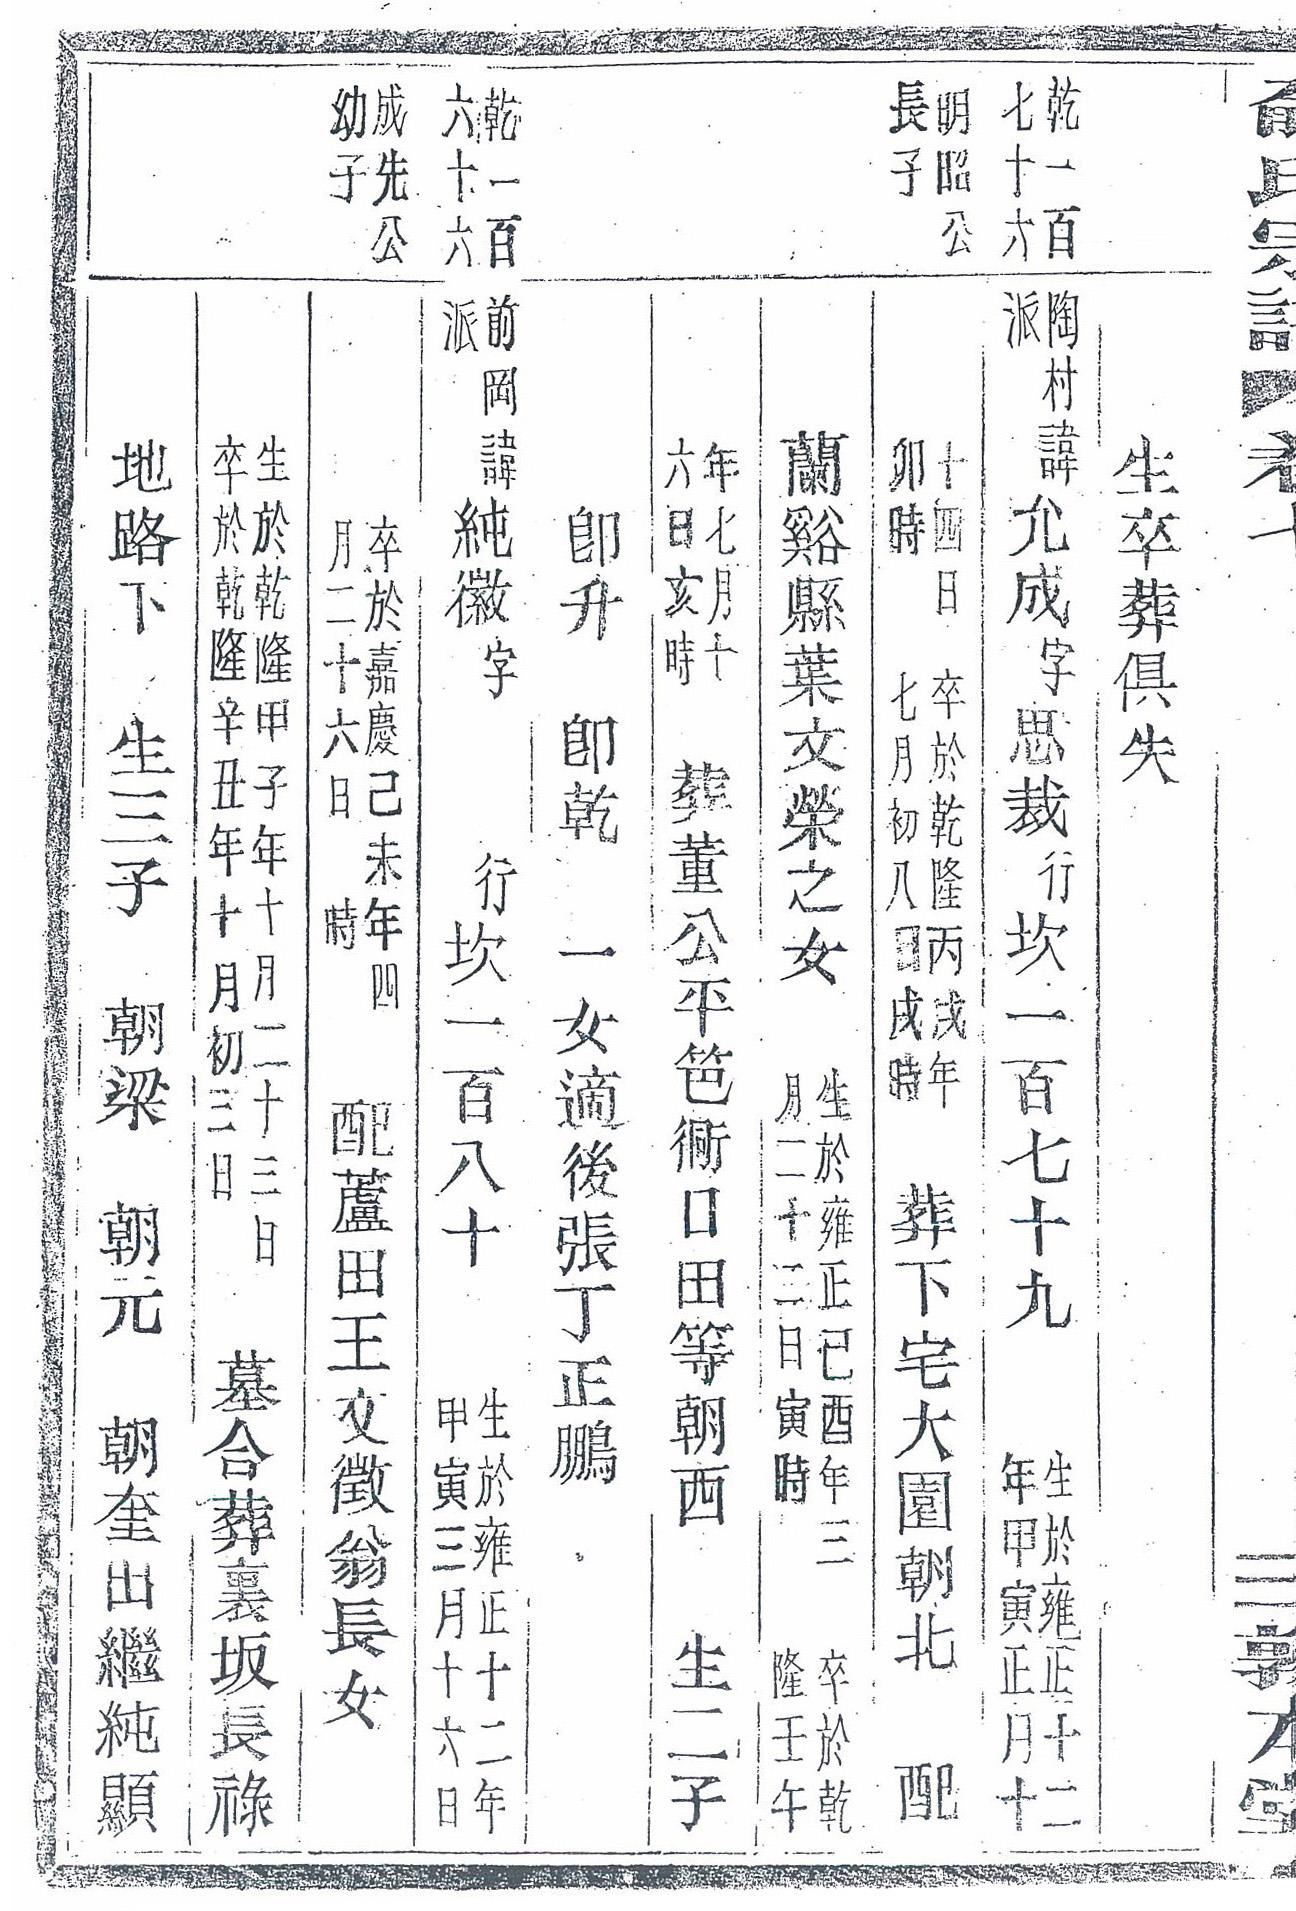 氏宗譜 卷十 三 敦本堂
生卒葬俱失
乾一百
七十六
陶村諱
派
允成字思裁行坎一百七十九
生於雍正十二
年甲寅正月十
明昭公
長子
十四日
卯時
卒於乾隆丙戌年
七月初八日戌時
葬下宅大園朝北 配
蘭谿縣葉文榮之女
生於雍正己酉年三
月二十二日寅時
卒於乾
隆壬午
年七月十
六日亥時
葬董公平笆衕口田等朝西 生二子
卽升 卽乾 一女適後張丁正鵬
乾一百
六十六
前岡諱
派
純徽字 行坎一百八十
生於雍正十二年
甲寅三月十六日
成先公
幼子
卒於嘉慶己未年四
月二十六日 時
配蘆田王文徵翁長女
生於乾隆甲子年十月二十三日
卒於乾隆辛丑年十月初三日
墓合葬裏坂長祿
地路下 生三子 朝梁 朝元 朝奎出繼純顯